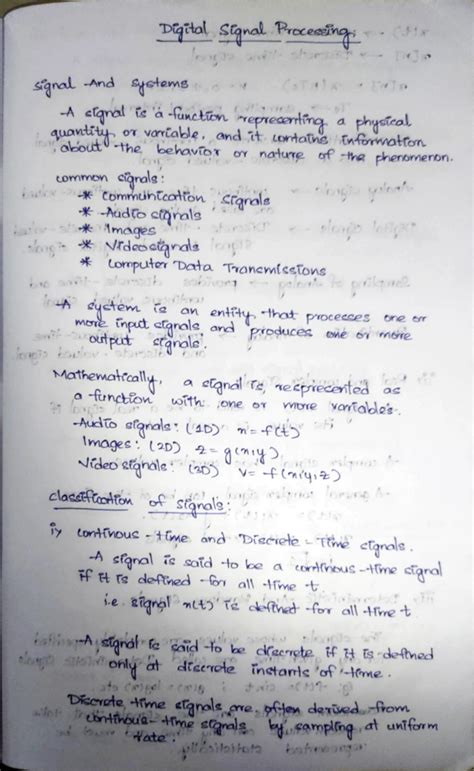 Digital Signal Processing
Signal And Systems
A signal is a function representing a physical
quantity or variable, and it contains information
about the behavior or nature of the phenomenon.
common signals:
* Communication signals
* Audio signals
* Images
* Video signals
* Computer Data Transmissions
A system is an entity that processes one or
more input signals and produces one or more
output signals.
Mathematically, a signal is respresented as
a function with one or more variables.
Audio signals: (1D) x = f(t)
Images: (2D) z = g(x,y)
Video signals: (3D) v = f(x,y,z)
classification of signals:
i> continous-time and Discrete-Time signals.
A signal is said to be a continous-time signal
if it is defined for all time t
i.e signal x(t) is defined for all time t
A signal is said to be discrete if it is defined
only at discrete instants of time.
Discrete time signals are often derived from
continous-time signals by sampling at uniform
rate.